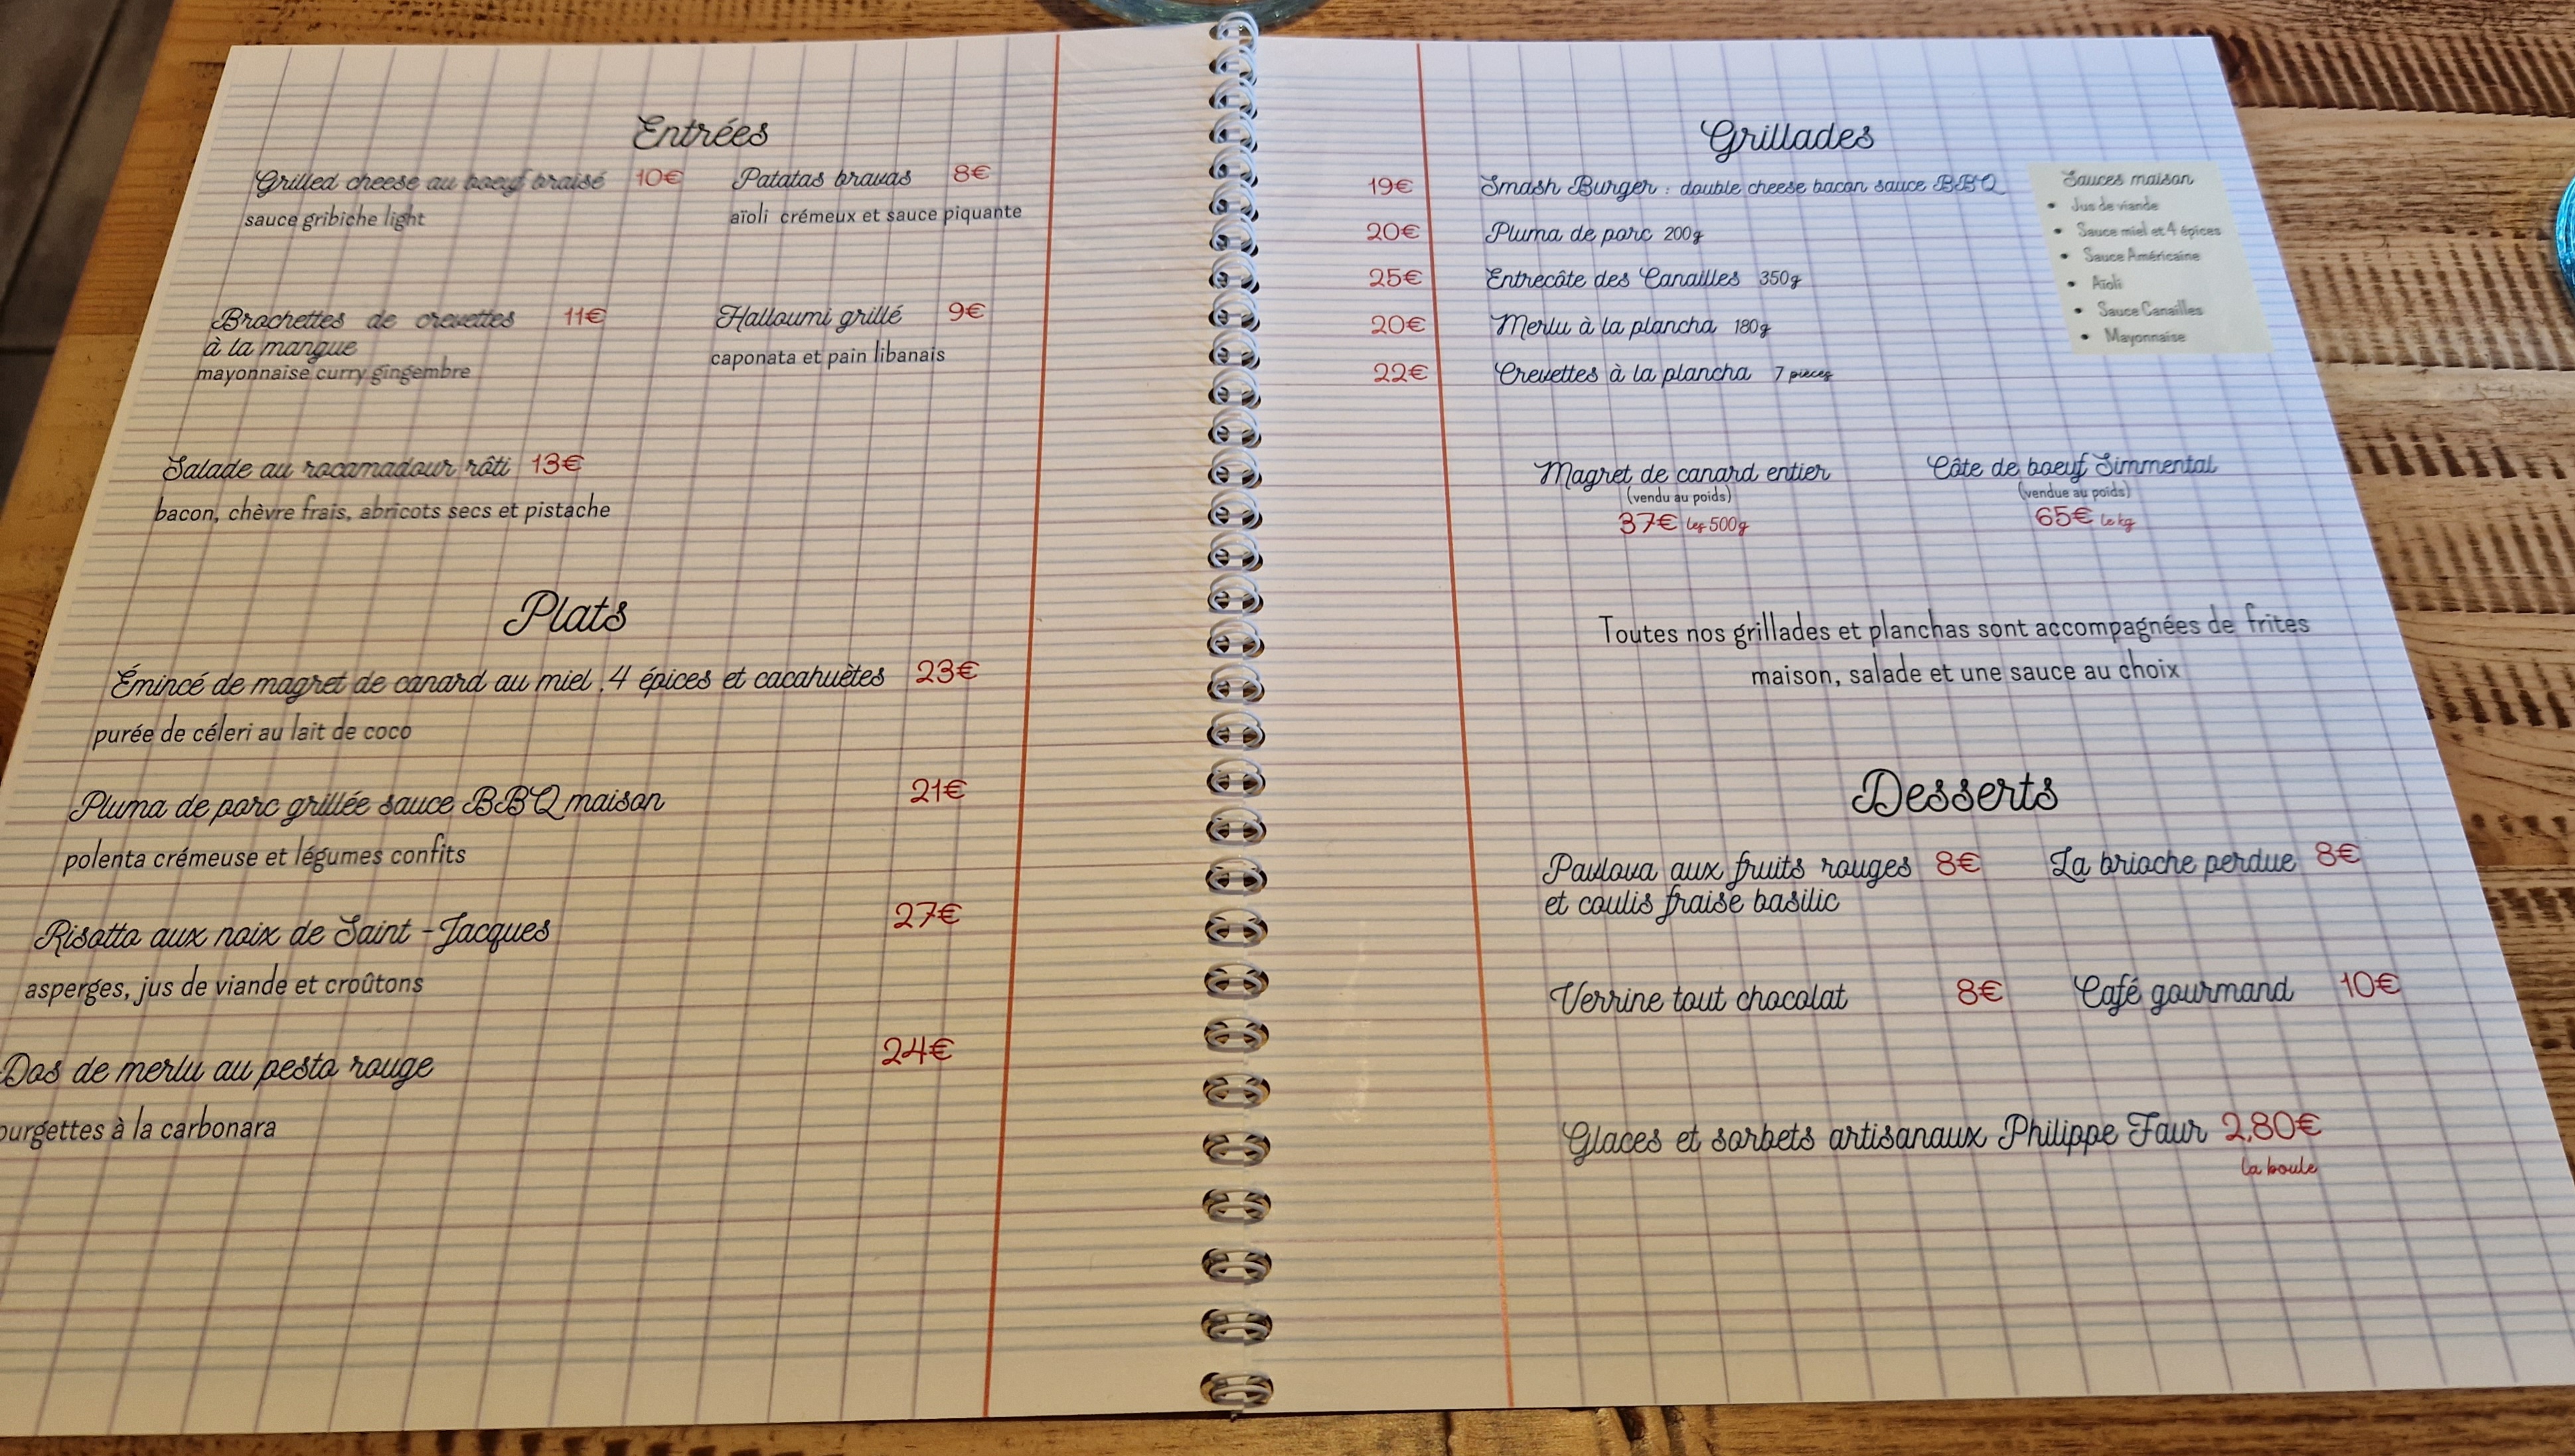 Entrées
Grilled cheese au boeuf braisé 10€
sauce gribiche light
Patatas bravas 8€
aïoli crémeux et sauce piquante
Brochettes de crevettes 11€
à la mangue
mayonnaise curry gingembre
Halloumi grillé 9€
caponata et pain libanais
Salade au rocamadour rôti 13€
bacon, chèvre frais, abricots secs et pistache
Plats
Émincé de magret de canard au miel ,4 épices et cacahuètes 23€
purée de céleri au lait de coco
Pluma de porc grillée sauce BBQ maison 21€
polenta crémeuse et légumes confits
Risotto aux noix de Saint-Jacques 27€
asperges, jus de viande et croûtons
Dos de merlu au pesto rouge 24€
ourgettes à la carbonara
Grillades
19€ Smash Burger : double cheese bacon sauce BBQ
20€ Pluma de porc 200g
25€ Entrecôte des Canailles 350g
20€ Merlu à la plancha 180g
22€ Crevettes à la plancha 7 pièces
Sauces maison
• Jus de viande
• Sauce miel et 4 épices
• Sauce Américaine
• Aïoli
• Sauce Canailles
• Mayonnaise
Magret de canard entier
(vendu au poids)
37€ les 500g
Côte de boeuf Simmental
(vendue au poids)
65€ le kg
Toutes nos grillades et planchas sont accompagnées de frites
maison, salade et une sauce au choix
Desserts
Pavlova aux fruits rouges 8€
et coulis fraise basilic
La brioche perdue 8€
Verrine tout chocolat 8€
Café gourmand 10€
Glaces et sorbets artisanaux Philippe Faur 2,80€
la boule